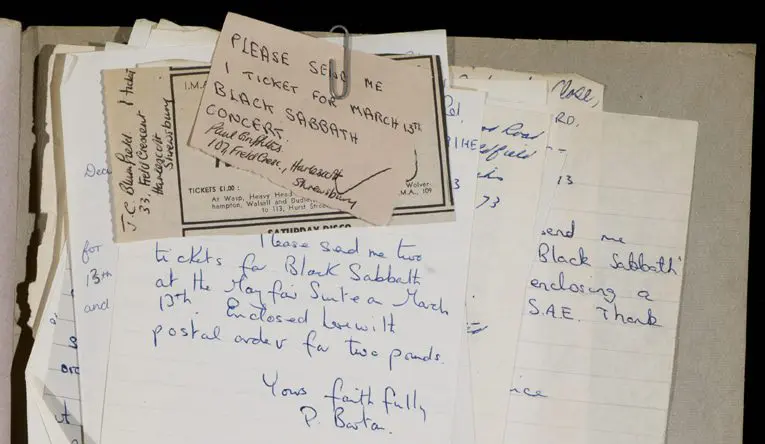 PLEASE SEND ME
1 TICKET FOR MARCH 13TH
BLACK SABBATH
CONCERT.
Paul Griffiths
107, Field Cresc., Harlescott
Shrewsbury
J. C. Blumfield 1 ticket
33, Field Crescent
Harlescott
Shrewsbury
I.M.A
TICKETS £1.00 :
At Wasp, Heavy Head
Wolver-
hampton, Walsall and Dudley
M.A., 109
to 113, Hurst Stre
SATURDAY DISCO
Please send me two
tickets for Black Sabbath
at the Mayfair Suite on March
13th. Enclosed herewith
postal order for two pounds.
Yours faithfully
P. Barton.
for
13th
and
Close,
RD.
Road
73
13
send me
Black Sabbath'
enclosing a
S.A.E. Thank